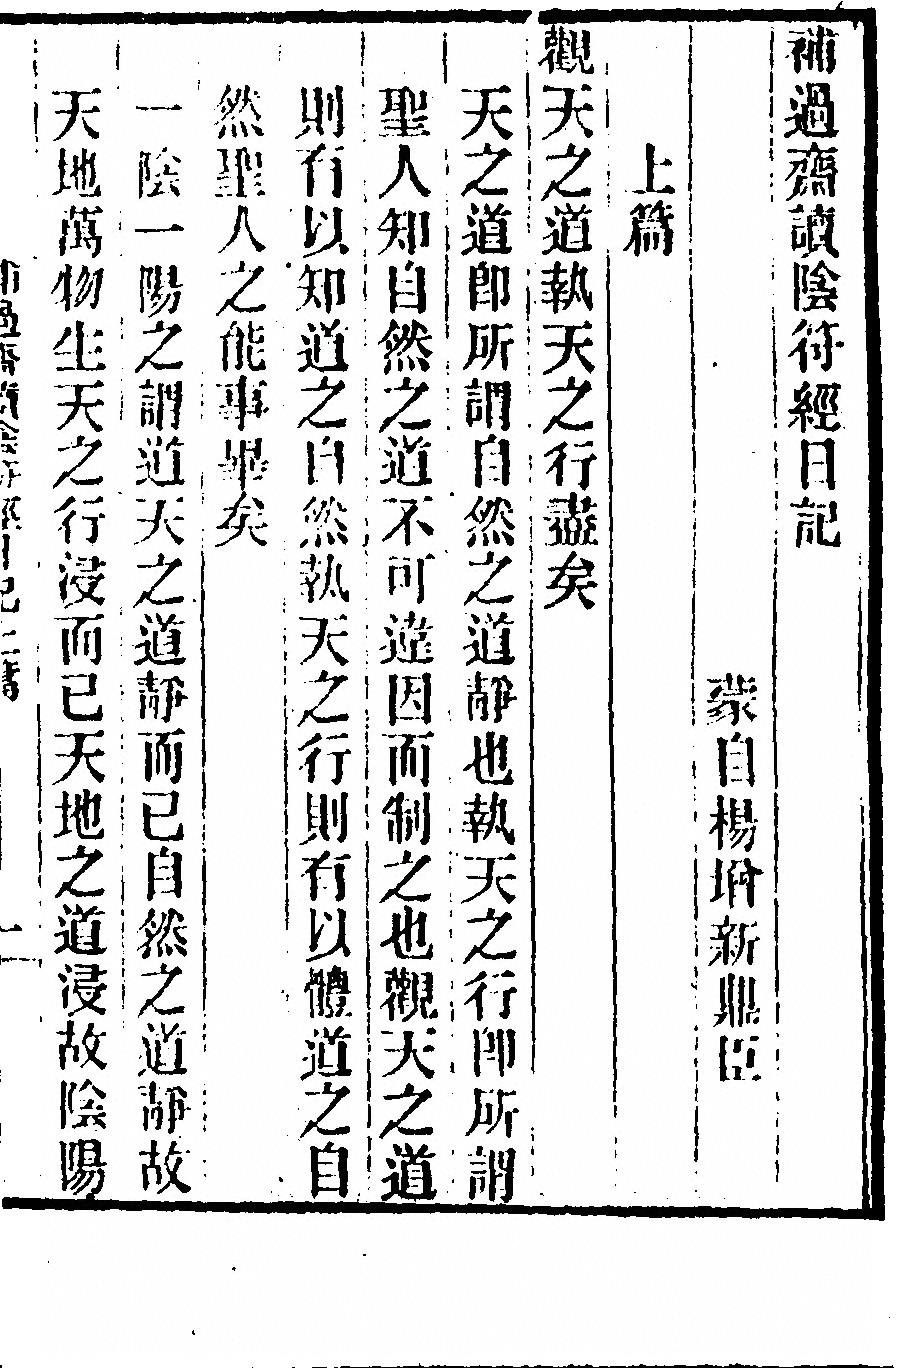 補過齋讀陰符經日記
蒙自楊增新鼎臣
上篇
觀天之道執天之行盡矣
天之道卽所謂自然之道靜也執天之行卽所謂
聖人知自然之道不可違因而制之也觀天之道
則有以知道之自然執天之行則有以體道之自
然聖人之能事畢矣
一陰一陽之謂道天之道靜而已自然之道靜故
天地萬物生天之行浸而已天地之道浸故陰陽
補過齋讀陰符經日記上篇
一